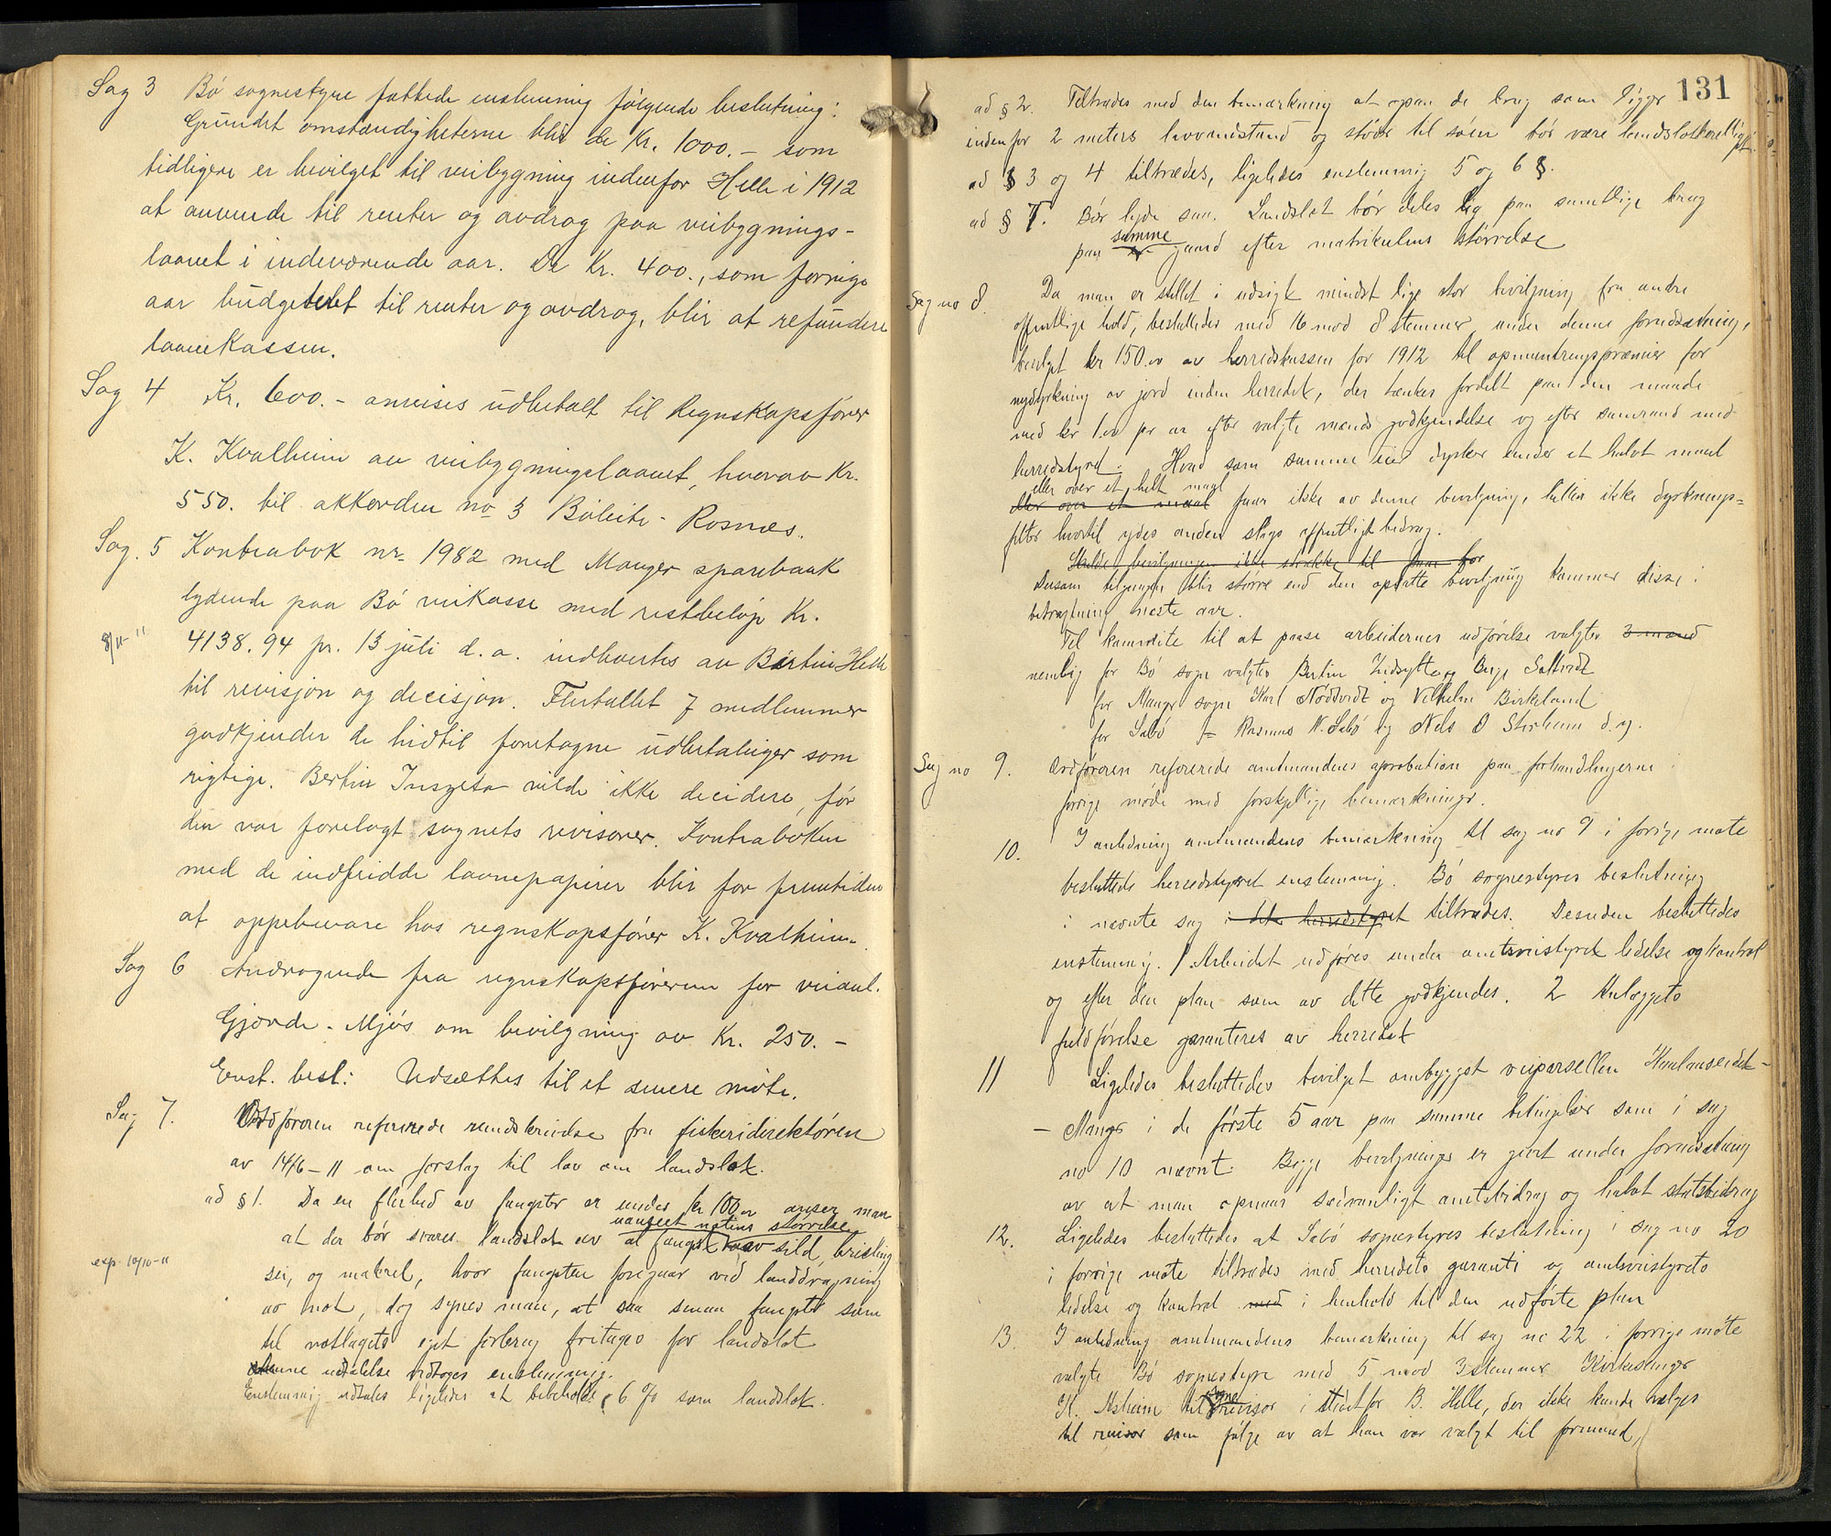 Sag 3 Bø sognestyre fattede enstemmig følgende beslutning:
Grundet omstændigheterne blir de Kr. 1000.- som
tidligere er bevilget til veibygning indenfor Helle i 1912
at anvende til renter og avdrag paa veibygnings-
laanet i indeværende aar. De Kr. 400., som forrige
aar budgetert til renter og avdrag, blir at refundere
laanekassen.
Sag 4 Kr. 600.- anvises udbetalt til Regnskapsfører
K. Kvalheim av veibygningslaanet, hvorav Kr.
550. til akkorden no 3 Bøleite - Rosnæs.
Sag. 5 Kontrabok nr 1982 med Manger sparebank
lydende paa Bø veikasse med restbeløp Kr.
8/11-11 4138.94 pr. 13 juli d.a. indhentes av Bertin Helle
til revisjon og decisjon. Flertallet 7 medlemmer
godkjender de hidtil foretagne udbetalinger som
rigtige. Bertin Indzetø vilde ikke decidere, før
den var forelagt sognets revisorer. Kontraboken
med de indfridde laanepapirer blir for fremtiden
at oppebevare hos regnskapsfører K. Kvalheim.
Sag 6 Andragende fra regnskapsføreren for veianl.
Gjerde - Mjøs om bevilgning av Kr. 250.-
Enst. besl: Udsættes til et senere møte.
Sag 7. Ordføreren refererede rundskrivelse fra fiskeridirektøren
av 14/6-11 om forslag til lov om landslot.
ad § 1. Da en flerhed av fangster er under kr 100.00 anser man
uanseet notens størrelse
at der bør svares landslot av al fangst av sild, brisling
exp 10/10-11 sei, og makrel, hvor fangsten foregaar ved landdragning
av not, dog synes man, at saa smaa fangster som
til notlagets eget forbrug fritages for landslot
denne udtalelse vedtoges enstemmig.
Enstemmig udtales ligeledes at bibeholde 6 % som landslot.
131
ad § 2. Tiltrædes med den bemærkning at ogsaa de brug som ligger
indenfor 2 meters havmidstand og støder til søen bør være landslotberettiget.
ad § 3 og 4 tiltrædes, ligeledes enstemmig 5 og 6 §.
ad § 7. Bør lyde saa. Landslot bør deles lig paa samtlige brug
samme
paa gaard efter matrikulens størrelse
Sag no 8. Da man er stillet i udsigt mindst lige stor bevilgning fra andre
offentlige hold, besluttedes med 16 mod 8 stemmer under denne forudsætning,
bevilget kr 150.00 av herredskassen for 1912 til opmuntringspræmier for
nydyrkning av jord inden herredet, der tænkes fordelt paa den maade
med kr 1.00 pr ar efter valgte mænds godkjendelse og efter samraad med
herredstyret. Hvad som samme eier dyrker under et halvt maal
eller over et helt maal
eller over et maal faar ikke av denne bevilgning, heller ikke dyrknings-
felter hvortil ydes anden slags offentligt bidrag.
Skulde bevilgningen ikke strække til
Dersom tilgangen blir større end den opsatte bevilgning kommer disse i
betragtning neste aar.
Til komite til at paase arbeidernes udførelse valgtes 3 mænd
nemlig for Bø sogn valgtes Bertin Indsyltø og Berge Sættveidt
for Manger sogn Karl Nødtvedt og Vilhelm Birkeland
for Sæbø — Rasmus N. Sæbø og Nils O Storheim d.y.
Sag no 9. Ordføreren refererede amtmandens aprobation paa forhandlingerne i
forrige møde med forskjellige bemærkninger.
10. I anledning amtmandens bemærkning til sag no 9 i forige møte
besluttede herredstyret enstemmig. Bø sognestyres beslutning
i nævnte sag i det herredstyret tiltrædes. Desuden besluttedes
enstemmig. 1 Arbeidet udføres under amtsveistyret ledelse og kontrol
og efter den plan som av dette godkjendes. 2 Anlæggets
fuldførelse garanteres av herredet
11 Ligeledes besluttedes bevilget ombygget veiparsellen Hualmseidet-
- Manger i de første 5 aar paa samme betingelser som i sag
no 10 nævnt. Begge bevilgninger er gjort under forudsætning
av at man opnaar sædvanligt amtsbidrag og halvt statsbidrag
12. Ligeledes besluttedes at Sæbø sognestyres beslutning i sag no 20
i forrige møte tiltrædes med herredets garanti og amtsveistyrets
ledelse og kontrol med i henhold til den udførte plan
13. I anledning amtmandens bemærkning til sag no 22 i forrige møte
valgte Bø sognestyre med 5 mod 3 stemmer Kirkesanger
K. Askeim til revisor i stedet for B. Helle, der ikke kunde vælges
til revisor som følge av at han var valgt til formand,